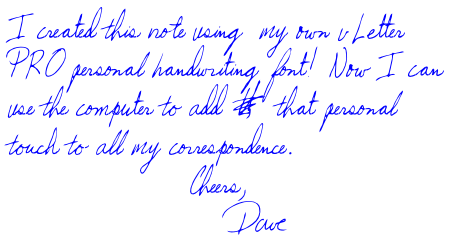 I created this note using my own vLetter
PRO personal handwriting font! Now I can
use the computer to add that personal
touch to all my correspondence.
Cheers,
Dave